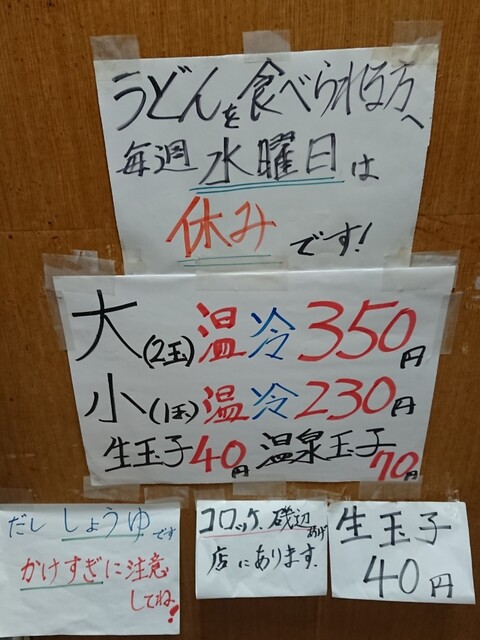 うどんを食べられる方へ
毎週 水曜日は
休みです!
大(2玉)温冷350円
小(1玉)温冷230円
生玉子40円 温泉玉子70円
だししょうゆです
かけすぎに注意
してね!
コロッケ、磯辺あげ
店にあります.
生玉子
40円